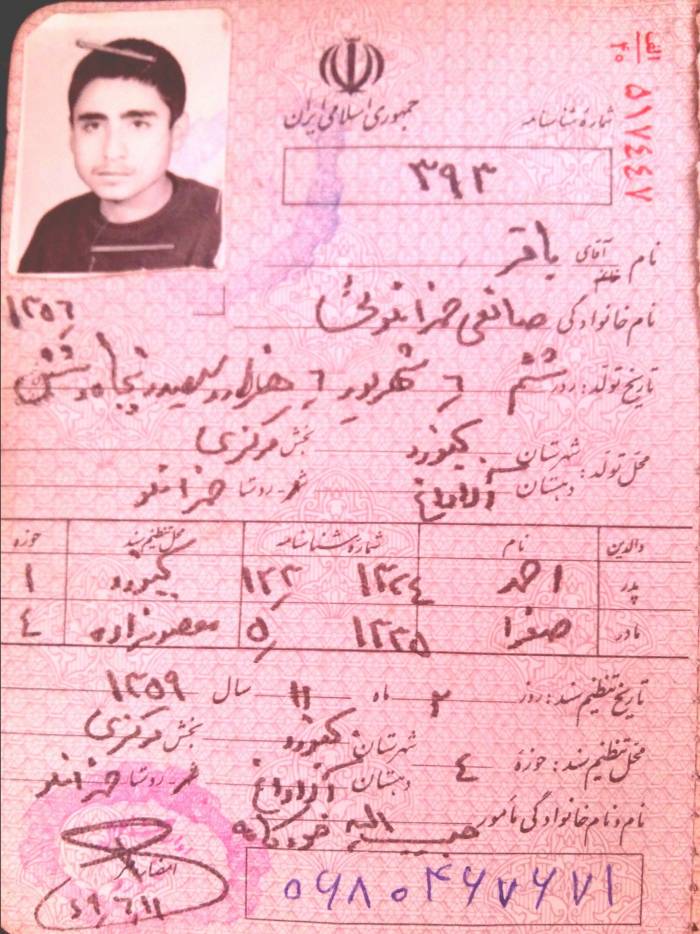 جمهوری اسلامی ایران
شمارهٔ شناسنامه
الف
۴۰
۵۱۷۴۴۷
۳۹۳
نام آقای باقر
نام خانوادگی صانعی حمزانلوئی
۱۳۵۶
تاریخ تولد: روز ششم ۶ شهریور ۶ هزار و سیصد و پنجاه و شش
محل تولد: شهرستان بجنورد بخش مرکزی
دهستان آلاداغ روستا حمزانلو
والدین نام شمارهٔ شناسنامه محل تنظیم سند حوزه
پدر احمد ۱۲۳ بجنورد ۱
مادر صغرا ۱۳۳۵ ۵ ۴
تاریخ تنظیم سند: روز ۲ ماه ۱۱ سال ۱۳۵۹
محل تنظیم سند: حوزهٔ ۴ شهرستان بجنورد بخش مرکزی
دهستان آلاداغ روستا حمزانلو
نام و نام خانوادگی مأمور
امضاء
۰۶۸۰۴۶۷۶۷۱